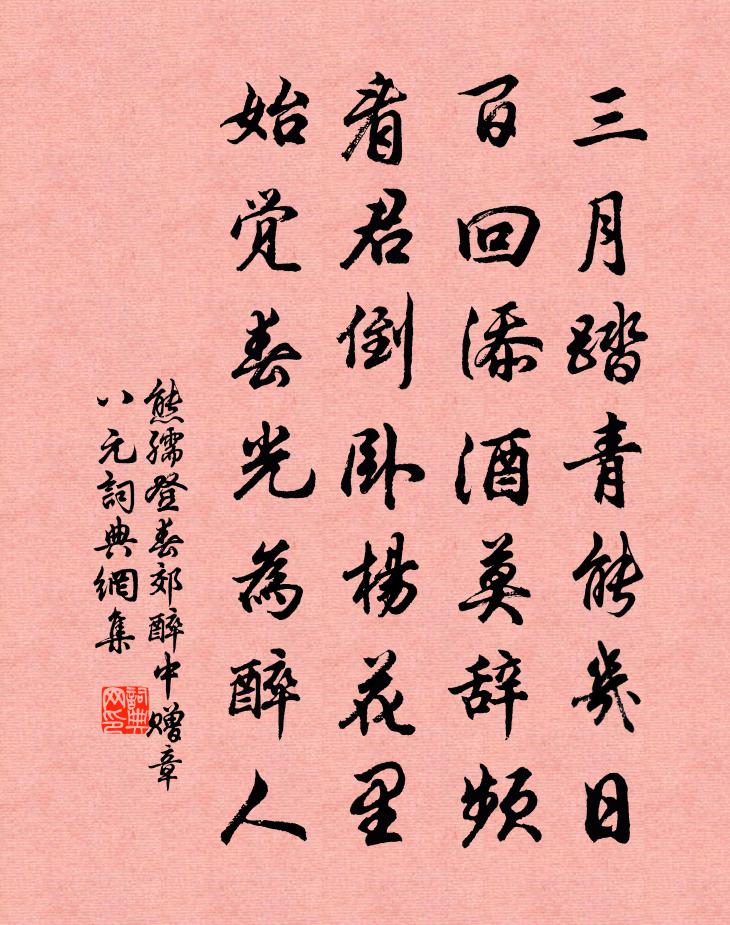 三月踏青能几日
百回添酒莫辞频
看君倒卧杨花里
始觉春光為醉人
熊孺登春郊醉中赠章
八元詞典網集
詞典
网印